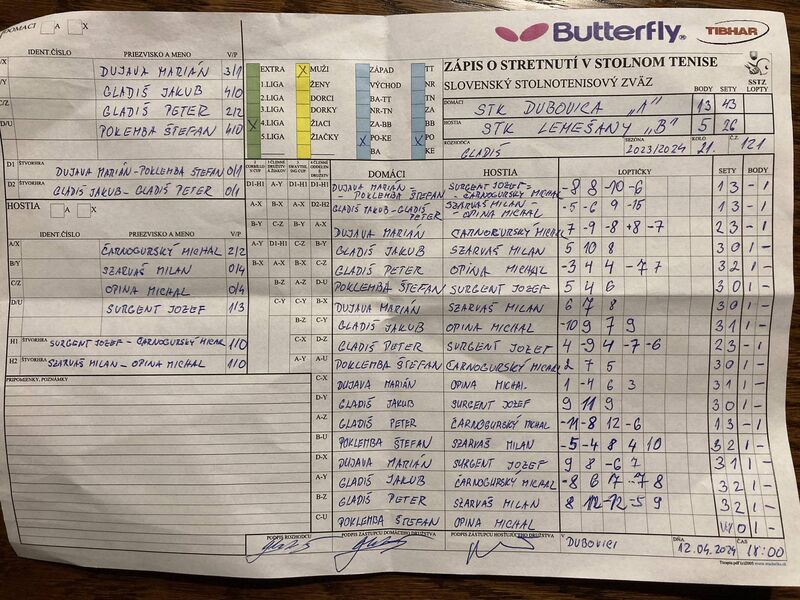 DOMÁCI A X
IDENT.ČÍSLO PRIEZVISKO A MENO V/P
A/X DUJAVA MARIÁN 3/1
B/Y GLADIŠ JAKUB 4/0
C/Z GLADIŠ PETER 2/2
D/U POKLEMBA ŠTEFAN 4/0
D1 ŠTVORHRA DUJAVA MARIÁN-POKLEMBA ŠTEFAN 0/1
D2 ŠTVORHRA GLADIŠ JAKUB-GLADIŠ PETER 0/1
HOSTIA A X
IDENT.ČÍSLO PRIEZVISKO A MENO V/P
A/X ČARNOGURSKÝ MICHAL 2/2
B/Y SZARVAŠ MILAN 0/4
C/Z OPINA MICHAL 0/4
D/U SURGENT JOZEF 1/3
H1 ŠTVORHRA SURGENT JOZEF-ČARNOGURSKÝ MICHAL 1/0
H2 ŠTVORHRA SZARVAŠ MILAN-OPINA MICHAL 1/0
PRIPOMIENKY, POZNÁMKY
EXTRA X MUŽI ZÁPAD TT
1.LIGA ŽENY VÝCHOD NR
2.LIGA DORCI BA-TT TN
3.LIGA DORKY NR-TN ZA
X 4.LIGA ŽIACI ZA-BB BB
5.LIGA ŽIAČKY X PO-KE X PO
BA-KE KE
Butterfly TIBHAR
ZÁPIS O STRETNUTÍ V STOLNOM TENISE
SLOVENSKÝ STOLNOTENISOVÝ ZVÄZ
SSTZ
BODY SETY LOPTY
DOMÁCI STK DUBOVICA "A" 13 43
HOSTIA STK LEMEŠANY "B" 5 26
ROZHODCA GLADIŠ SEZÓNA 2023/2024 KOLO 21. Č.Z. 121
DOMÁCI HOSTIA LOPTIČKY SETY BODY
D1-H1 DUJAVA MARIÁN - POKLEMBA ŠTEFAN SURGENT JOZEF - ČARNOGURSKÝ MICHAL -8 8 -10 -6 1 3 - 1
D2-H2 GLADIŠ JAKUB-GLADIŠ PETER SZARVAŠ MILAN - OPINA MICHAL -5 -6 9 -15 1 3 - 1
A-X DUJAVA MARIÁN ČARNOGURSKÝ MICHAL 7 -9 -8 +8 -7 2 3 - 1
B-Y GLADIŠ JAKUB SZARVAŠ MILAN 5 10 8 3 0 1 -
C-Z GLADIŠ PETER OPINA MICHAL -3 4 4 -7 7 3 2 1 -
D-U POKLEMBA ŠTEFAN SURGENT JOZEF 5 4 6 3 0 1 -
A-Y DUJAVA MARIÁN SZARVAŠ MILAN 6 7 8 3 0 1 -
B-Z GLADIŠ JAKUB OPINA MICHAL -10 9 7 9 3 1 1 -
C-U GLADIŠ PETER SURGENT JOZEF 4 -9 4 -7 -6 2 3 - 1
POKLEMBA ŠTEFAN ČARNOGURSKÝ MICHAL 2 7 5 3 0 1 -
C-X DUJAVA MARIÁN OPINA MICHAL 1 -4 6 3 3 1 1 -
D-Y GLADIŠ JAKUB SURGENT JOZEF 9 11 9 3 0 1 -
A-Z GLADIŠ PETER ČARNOGURSKÝ MICHAL -11 -8 12 -6 1 3 - 1
B-U POKLEMBA ŠTEFAN SZARVAŠ MILAN -5 -4 8 4 10 3 2 1 -
D-X DUJAVA MARIÁN SURGENT JOZEF 9 8 -6 7 3 1 1 -
A-Y GLADIŠ JAKUB ČARNOGURSKÝ MICHAL -8 6 7 -7 8 3 2 1 -
B-Z GLADIŠ PETER SZARVAŠ MILAN 8 12 -12 -5 9 3 2 1 -
C-U POKLEMBA ŠTEFAN OPINA MICHAL W 0 1 -
PODPIS ROZHODCU PODPIS ZÁSTUPCU DOMÁCEHO DRUŽSTVA PODPIS ZÁSTUPCU HOSŤUJÚCEHO DRUŽSTVA V DUBOVICI DŇA 12.04.2024 ČAS 18:00